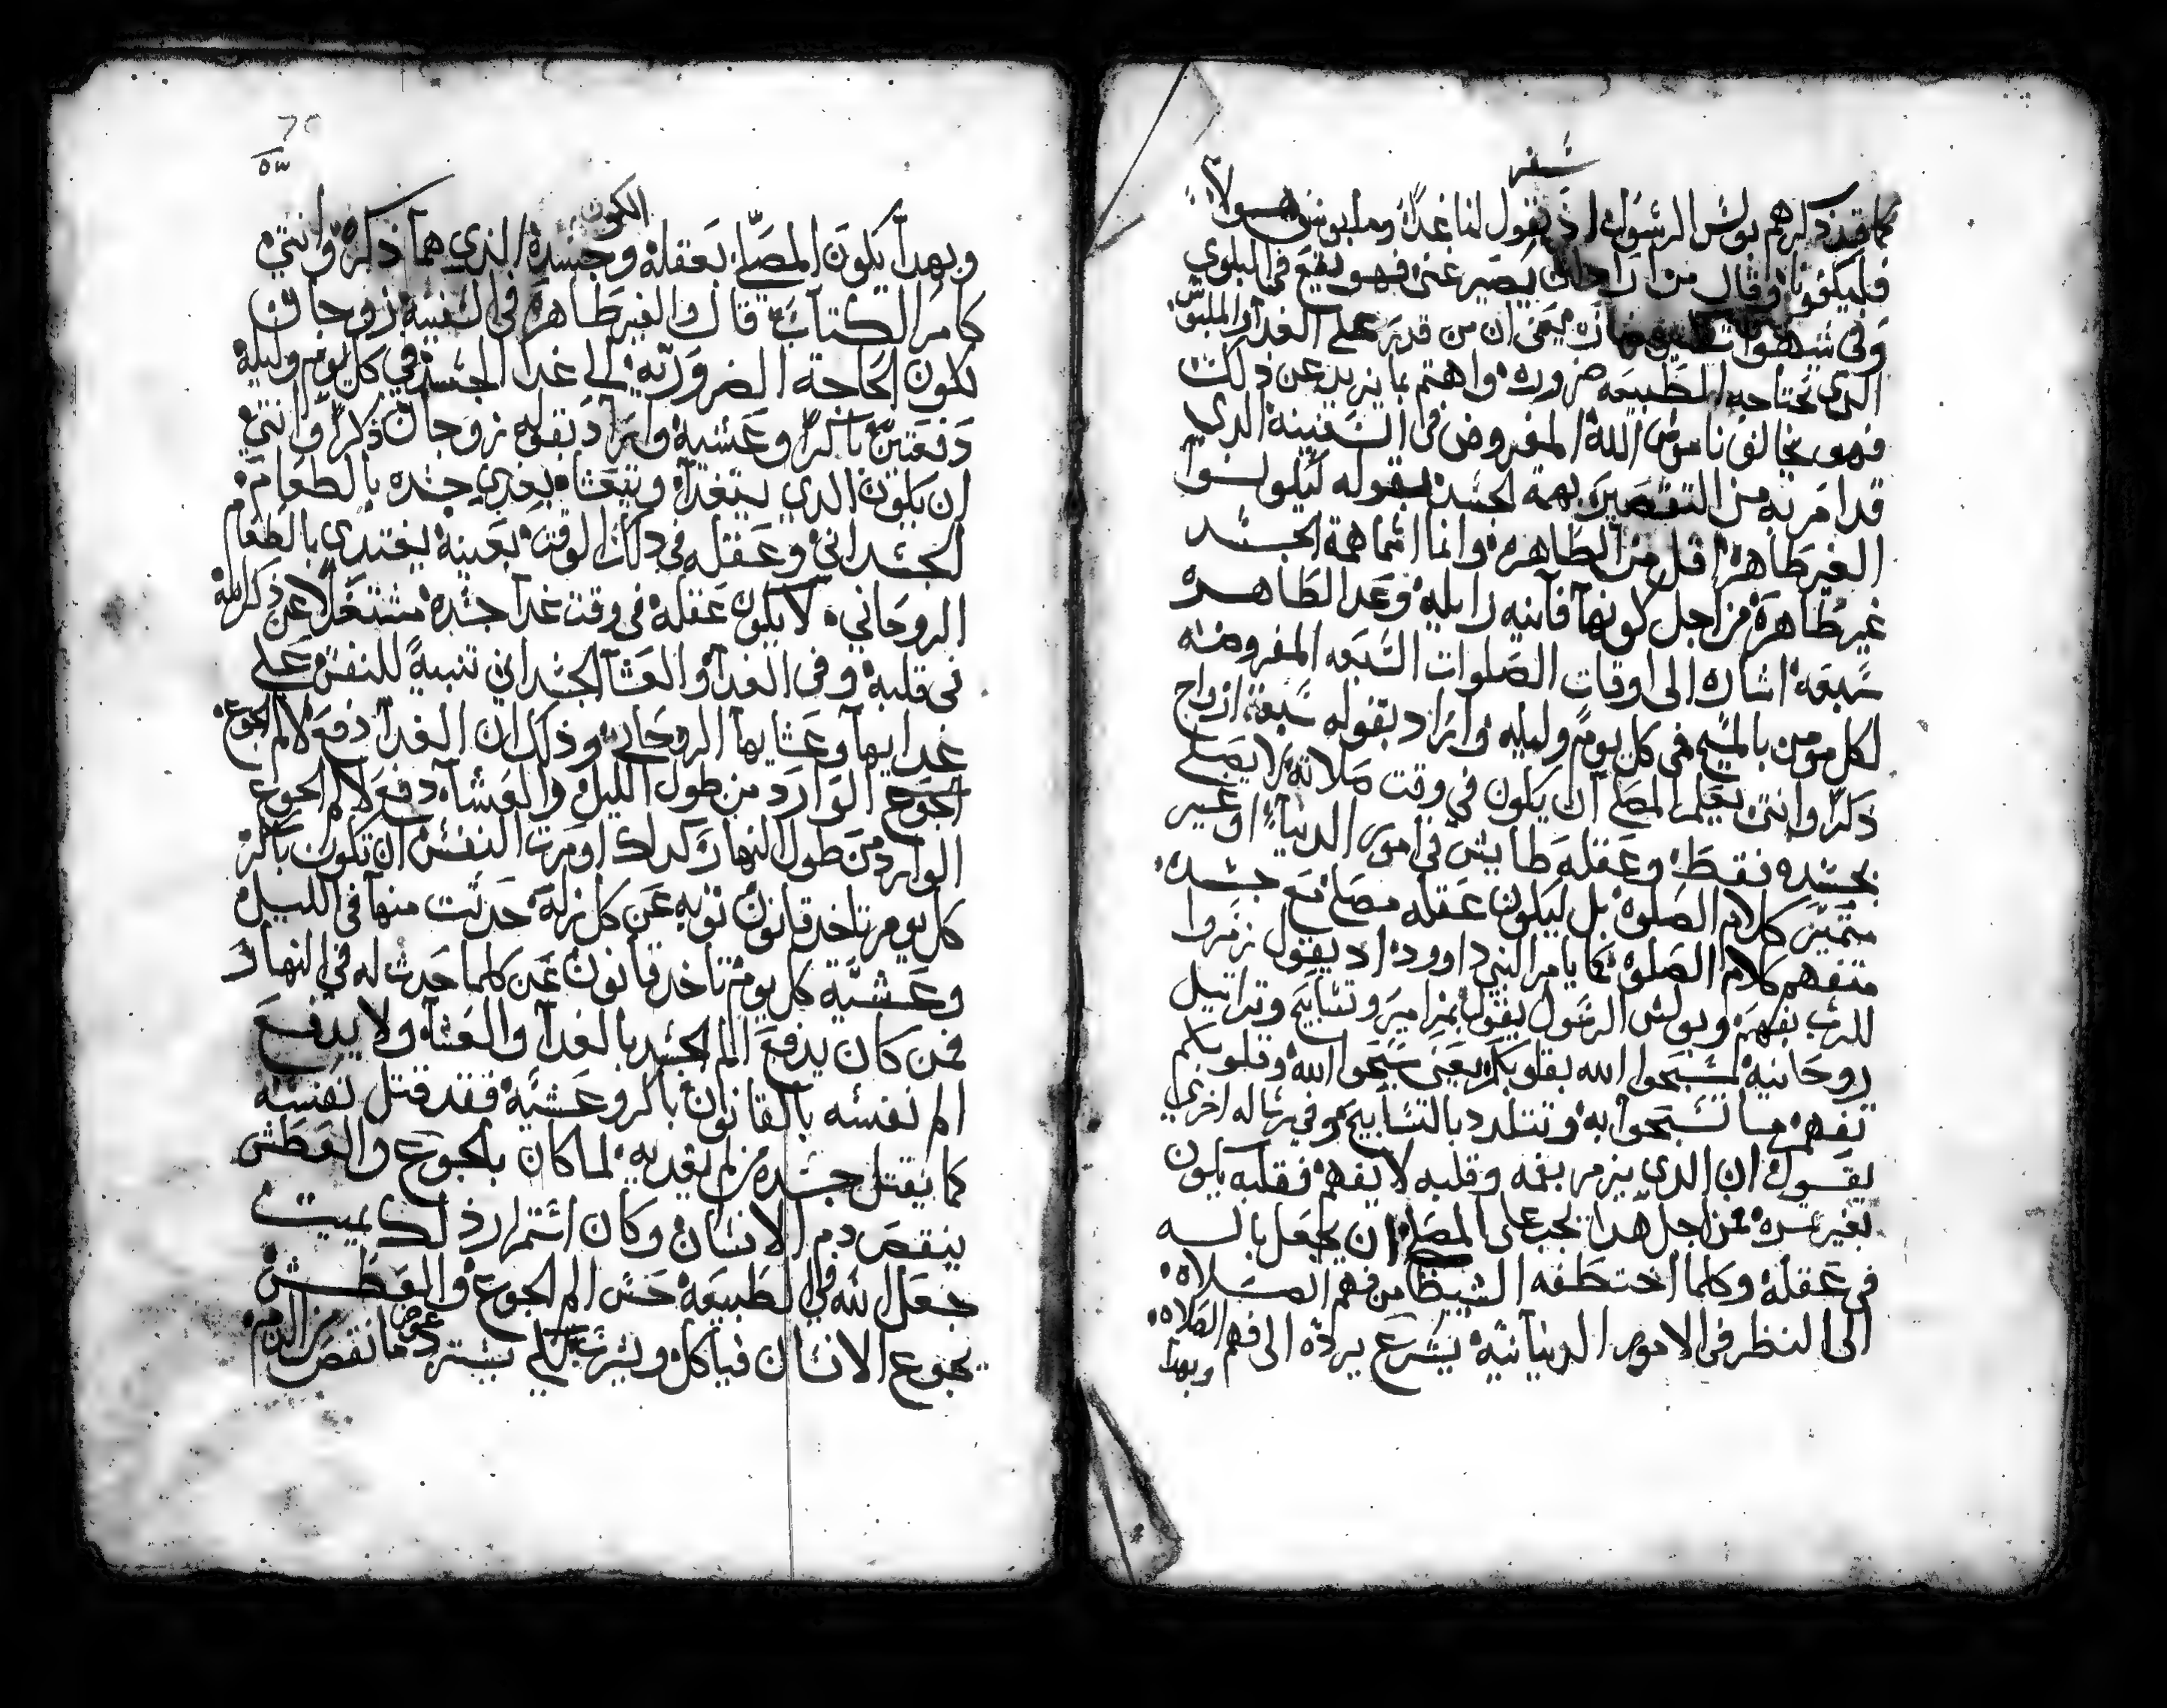 سفر
كما قد ذكرهم بولس الرسول اذ يقول لنا غدآ وملبوس هولاء
فليكفونا وقال من اراد ان يصير غني فهو يقع في البلوي
وفي شهوات يعني ان من قدر علي الغدا والملبوس
الدي تحتاجه الطبيعه ضروره واهتم بما يزيد عن دلك
فهو مخالف ناموس الله المفروض في السفينة الدي
قد امر به من التقصير بهمة الجسد بقوله ليكونوا
الغير طاهرة اقل من الطاهرة وانما اسما همة الجسد
غير طاهرة من اجل كونها فانيه زايله وعد الطاهره
سبعة اشارة الى اوقات الصلوات السبعه المفروضه
لكل مومن بالمسيح في كل يوم وليله واراد بقوله سبعة ازواج
ذكر وانتى يعلم المصلي ان يكون في وقت صلاته لا يصلي
بجسده فقط وعقله طايش في امور الدنيا او غير
متميز كلام الصلوة بل ليكون عقله مصلي مع جسده
متفهم كلام الصلوة كما يامر النبي داوود اد يقول زمروا
للرب بفهم وبولس الرسول يقول بمزامير وتسابيح وتراتيل
روحانية لتسبحوا الله بقلوبكم يعني سبحوا الله وقلوبكم
تفهم ما تسبحوا به وتتلدد بالتسابيح وفي رساله اخري
يقول ان الدي يزمر بفمه وقلبه لا يفهم فقلبه يكون
بغير تمره فمن اجل هدا يجب على المصلي ان يجعل باله
في عقله وكلما اختطفه الشيطان من فهم الصلاه
الى النظر في الامور الدنيانية يسرع يرده الى فهم الصلاه
وبهدا
٥٣
الكون
وبهدا يكون المصلي بعقله وجسده الذي هما ذكر وانتي
كامر الكتاب قال والغير طاهرة في السفينه زوجان
تكون الحاجة الضرورية الي غدا الجسد في كل يوم وليله
دفعتين باكر وعشية واراد بقوله زوجان ذكر وانتي
ان يكون الدي يتغدا ويتعشا يغدي جسده بالطعام
الجسداني وعقله في دلك الوقت بعينه يغتدي بالطعام
الروحاني لا يكون عقله في وقت غدا جسده مشتغلا عن ذكر الله
في قلبه وفي الغدا والعشا الجسداني تنبية للنفس علي
غدايها وعشايها الروحاني وذلك ان الغدا دفع لالم الجوع
الجوع الوارد من طول الليل والعشاه دفع لالم الجوع
الوارد من طول النهار كدلك اومرت النفس ان تكون باكر
كل يوم تاخد قانون توبه عن كل زلة حدثت منها في الليل
وعشية كل يوم تاخد قانون عن كلما حدث له في النهار
فمن كان يدفع الم الجسد بالغدا والعشاه ولا يدفع
الم نفسه بالقانون باكر وعشية فقد قتل نفسه
كما يقتل جسده من لم يغديه لما كان بالجوع والعطش
ينقص دم الانسان وكان استمرار ذلك يميت
جعل الله في الطبيعة حس الم الجوع والعطش
يجوع الانسان فياكل ويشرب لكي يسترد عوض ما نقص من الدم